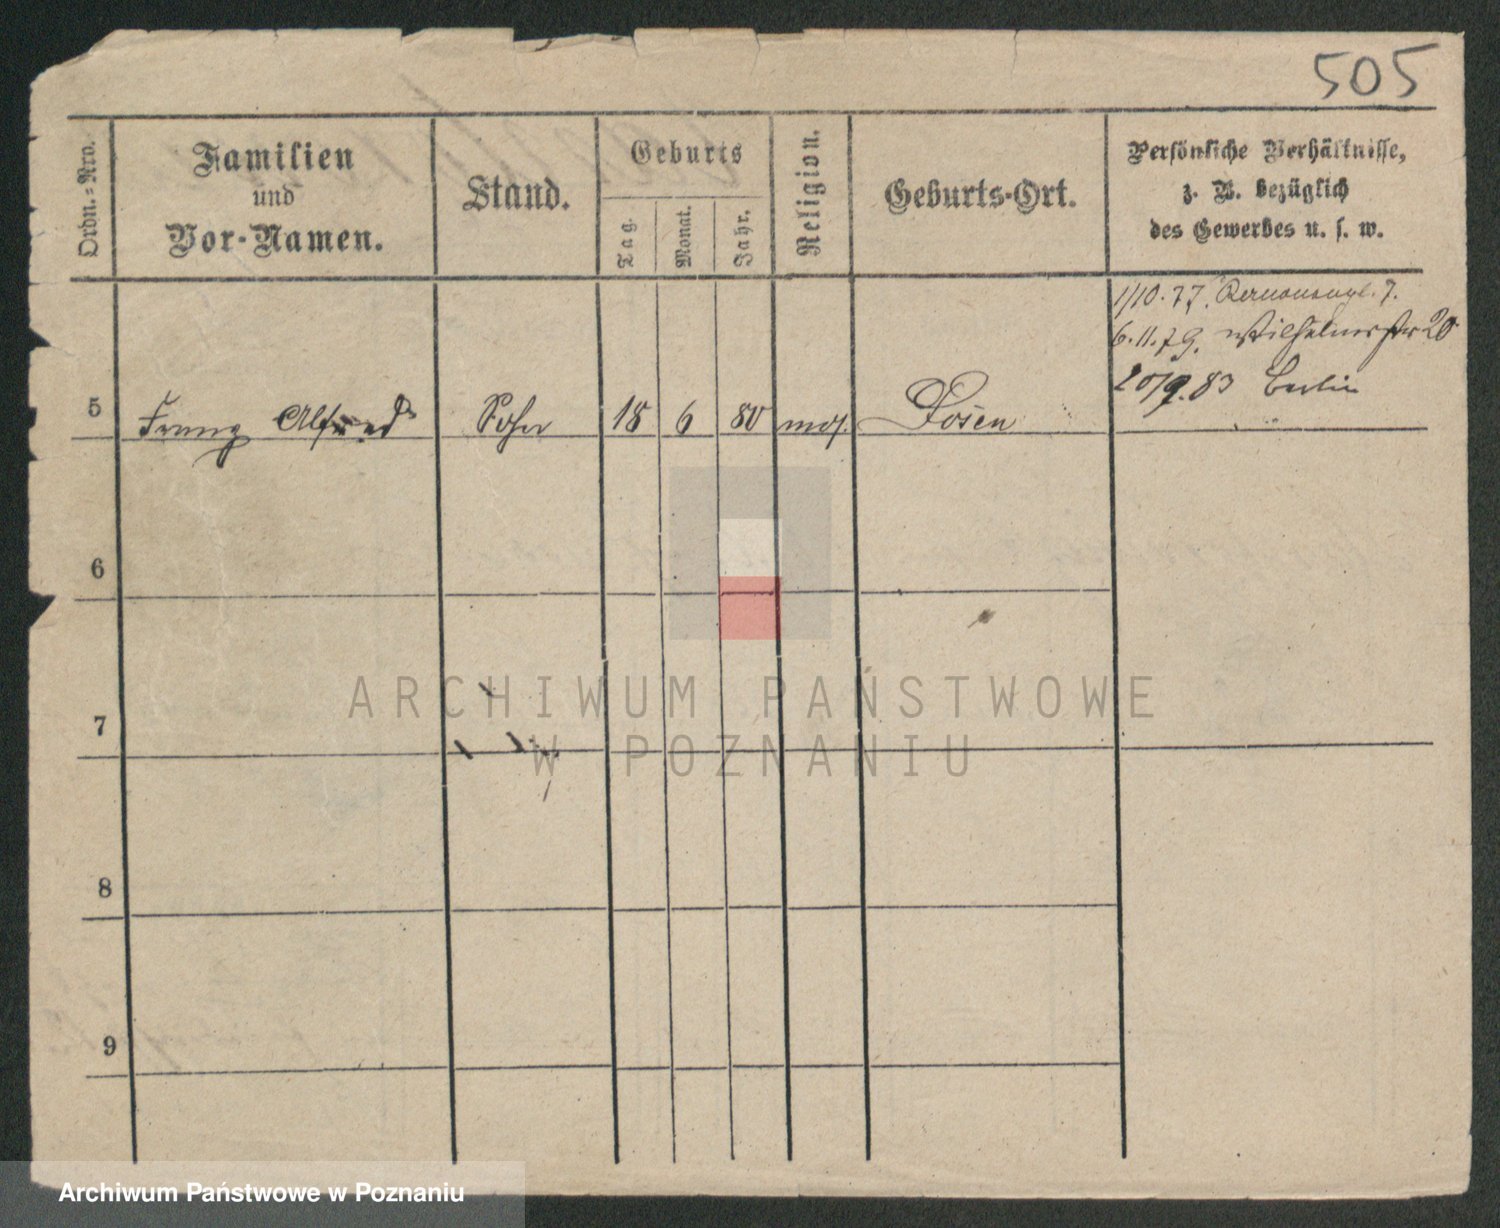 505
Ordn.=Nro.
Familien
und
Vor-Namen.
Stand.
Geburts
Tag.
Monat.
Jahr.
Religion.
Geburts-Ort.
Persönliche Verhältnisse,
z. B. bezüglich
des Gewerbes u. s. w.
1/10. 77.
6.11.79. Wilhelmstr 20
20/9.83 Berlin
5 Franz Alfred Sohn 18 6 80 mos. Posen
6
7
8
9
ARCHIWUM PAŃSTWOWE
W POZNANIU
Archiwum Państwowe w Poznaniu